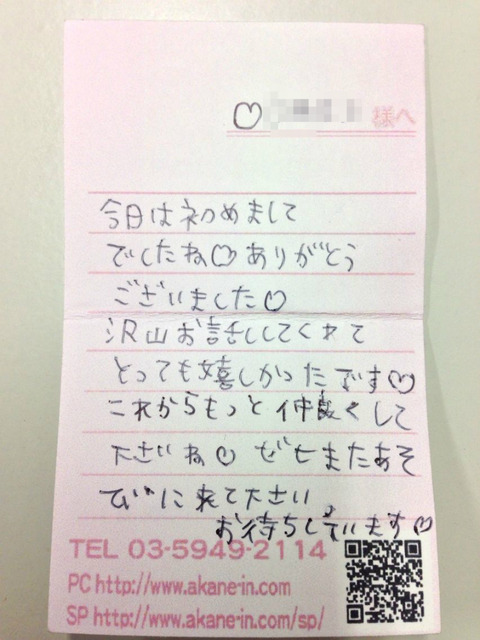 ♡ 様へ
今日は初めまして
でしたね♡ありがとう
ございました♡
沢山お話ししてくれて
とっても嬉しかったです♡
これからもっと仲良くして
下さいね♡ ぜひまたあそ
びに来て下さい
お待ちしています♡
TEL 03-5949-2114
PC http://www.akane-in.com
SP http://www.akane-in.com/sp/